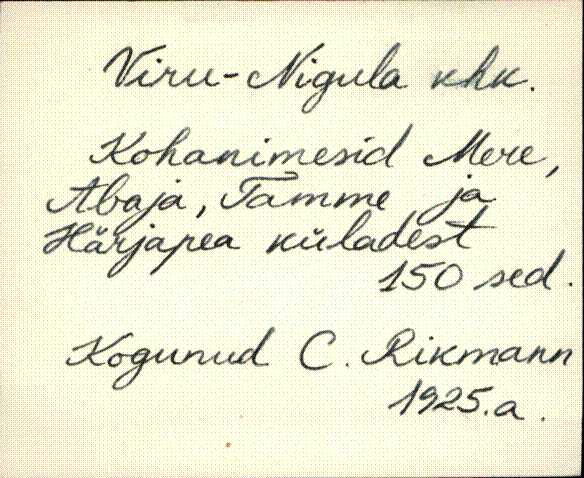 Viru-Nigula khk.
Kohanimesid Mere,
Abaja, Tamme ja
Härjapea küladest
150 sed.
Kogunud C. Rikmann
1925.a.